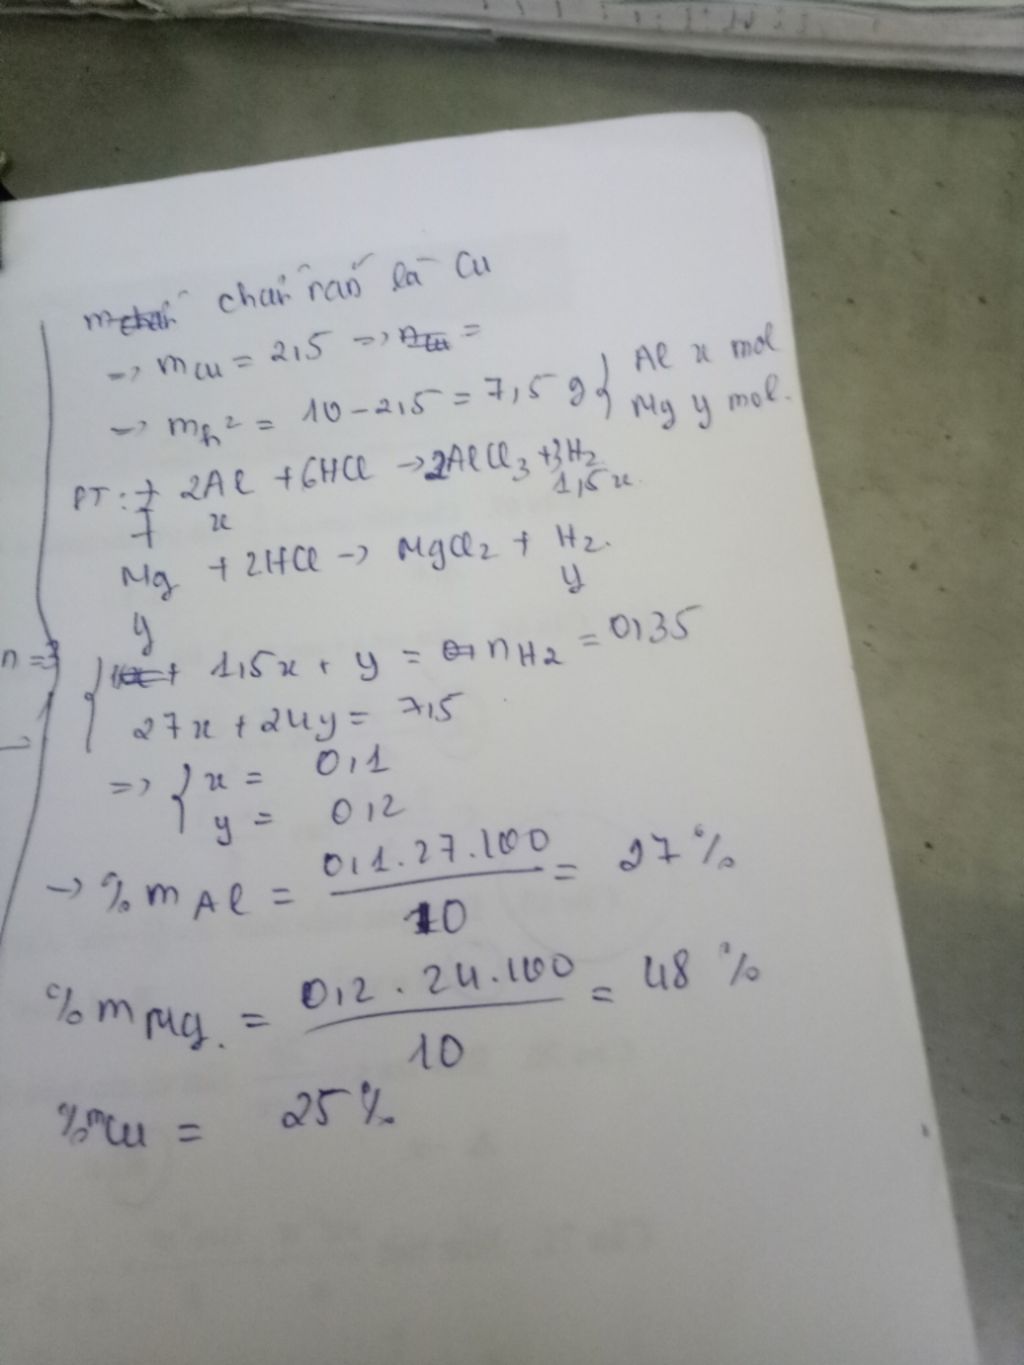 chất rắn là Cu
=> mCu = 2,5 => nCu =
=> mh² = 10 - 2,5 = 7,5 g { Al x mol
Mg y mol.
PT: + 2Al + 6HCl → 2AlCl3 + 3H2
x 1,5x
+
Mg + 2HCl → MgCl2 + H2.
y y
n = 3
{ 1,5x + y = nH2 = 0,35
27x + 24y = 7,5
=> { x = 0,1
y = 0,2
→ % m Al = 0,1.27.100 / 10 = 27 %
% m Mg. = 0,2.24.100 / 10 = 48 %
% mCu = 25 %